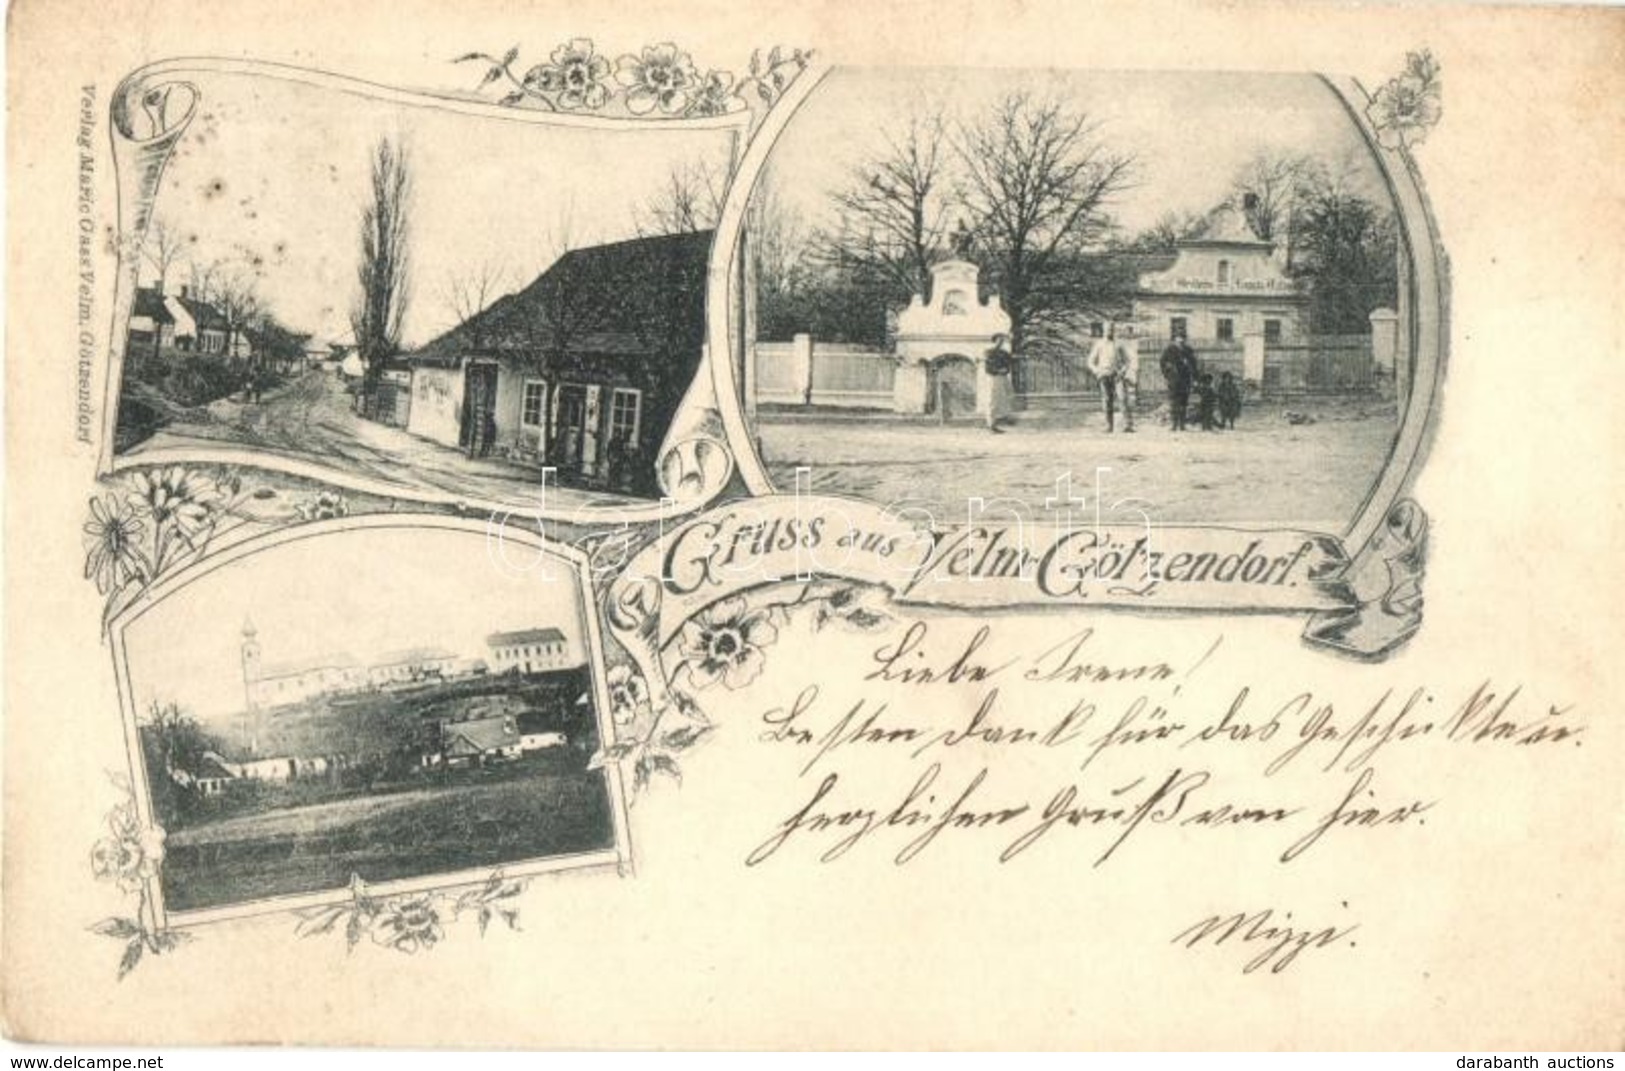 Verlag Marie Gass Velm. Götzendorf.
Gruss aus Velm-Götzendorf.
darabanth
Liebe Irene!
Besten Dank für das Geschickte u.
herzlichen Gruß von hier.
Mizzi.
www.delcampe.net
darabanth auctions